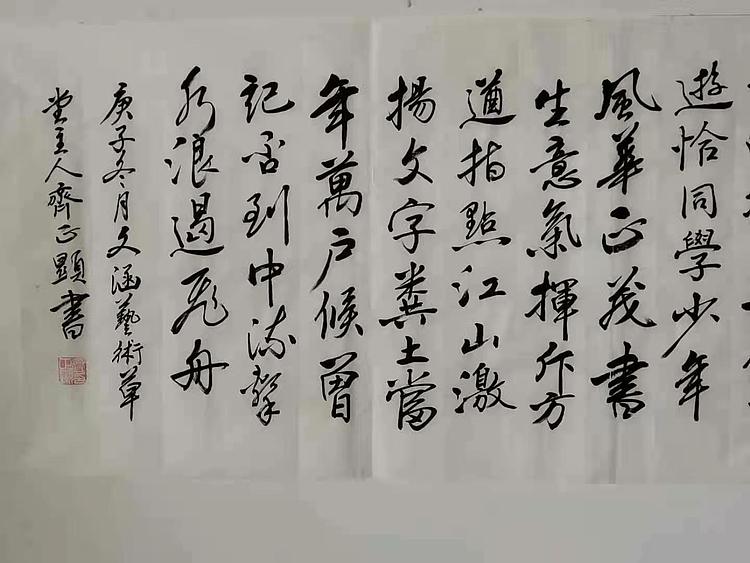 遊恰同學少年
風華正茂書
生意氣揮斥方
遒指點江山激
揚文字糞土當
年萬戶候曾
記否到中流擊
水浪遏飛舟
庚子冬月文涵藝術草
堂主人齊正顯書